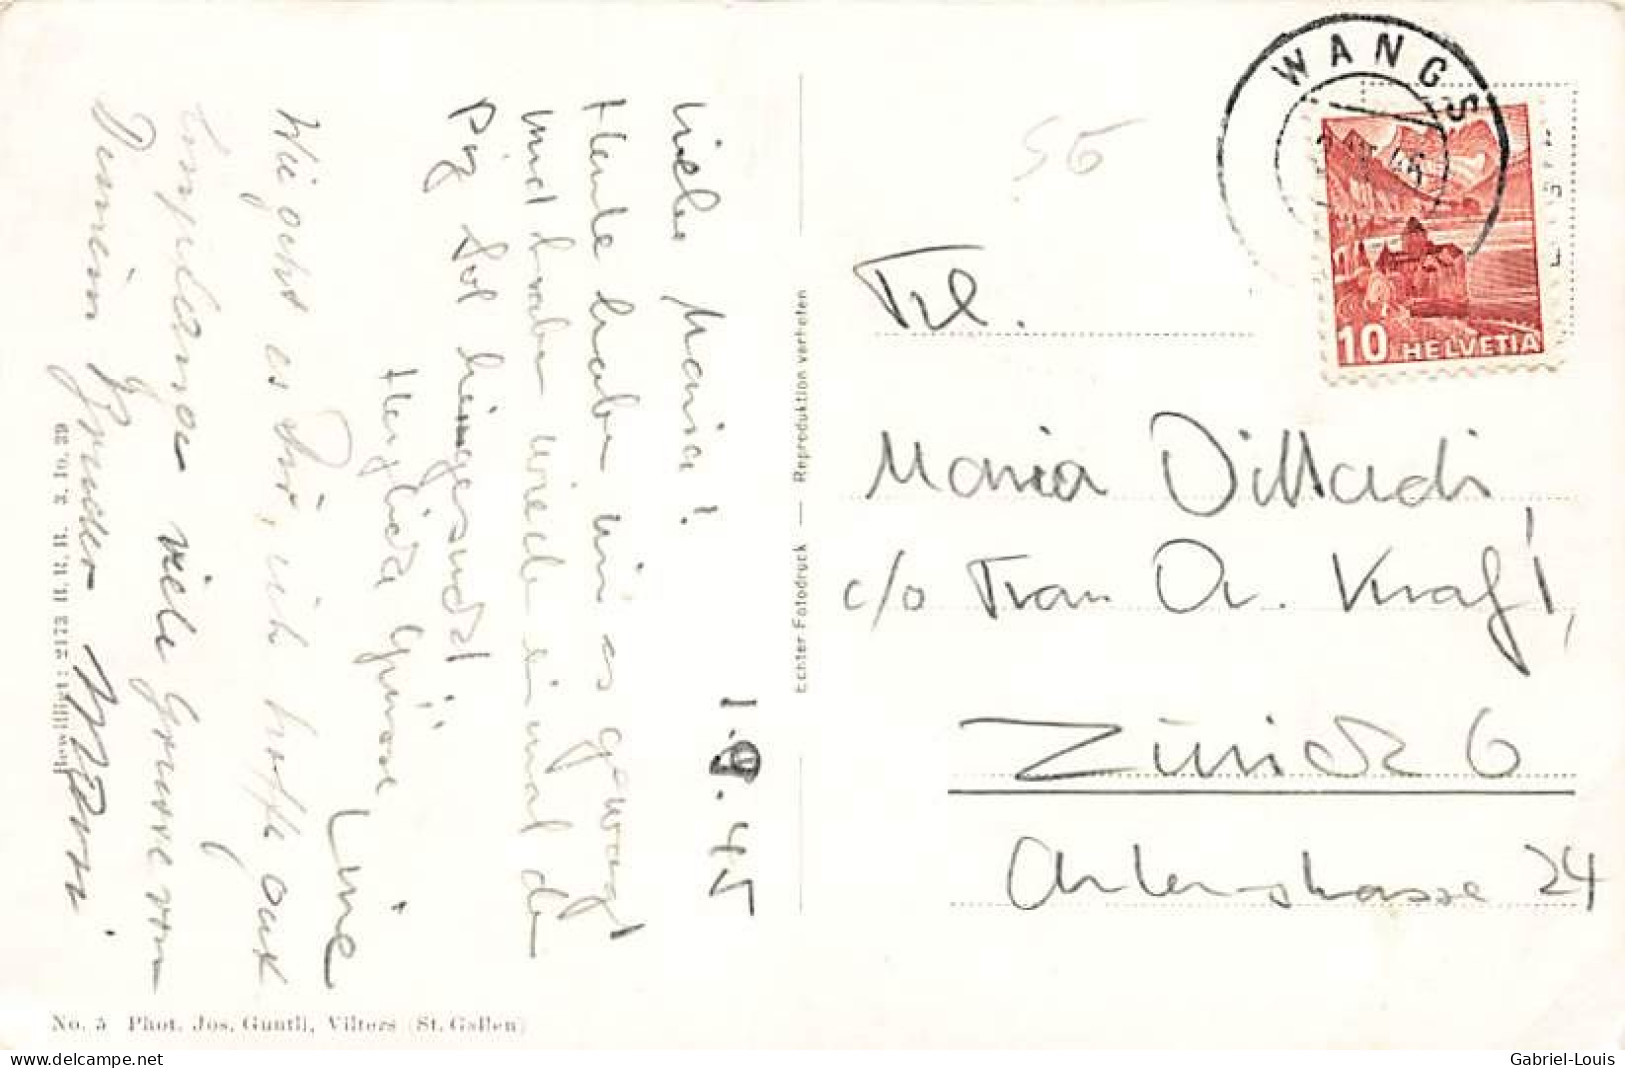 Liebe Maria!
1.9.45
Heute haben wir es gewagt
und haben wieder einmal den
Piz Sol heimgesucht!
Herzliche Grüsse
Line
Wie geht es Dir, ich hoffe gut
viele Grüsse von
Deinem Bruder
Bewilligt: 2173 3.10.39
No. 5 Phot. Jos. Guntli, Vilters (St. Gallen)
Echter Fotodruck — Reproduktion verboten
56
WANGS
10 HELVETIA
Frl.
Maria
c/o Frau Dr. Kraft,
Zürich 6
24
delcampe.net
Gabriel-Louis